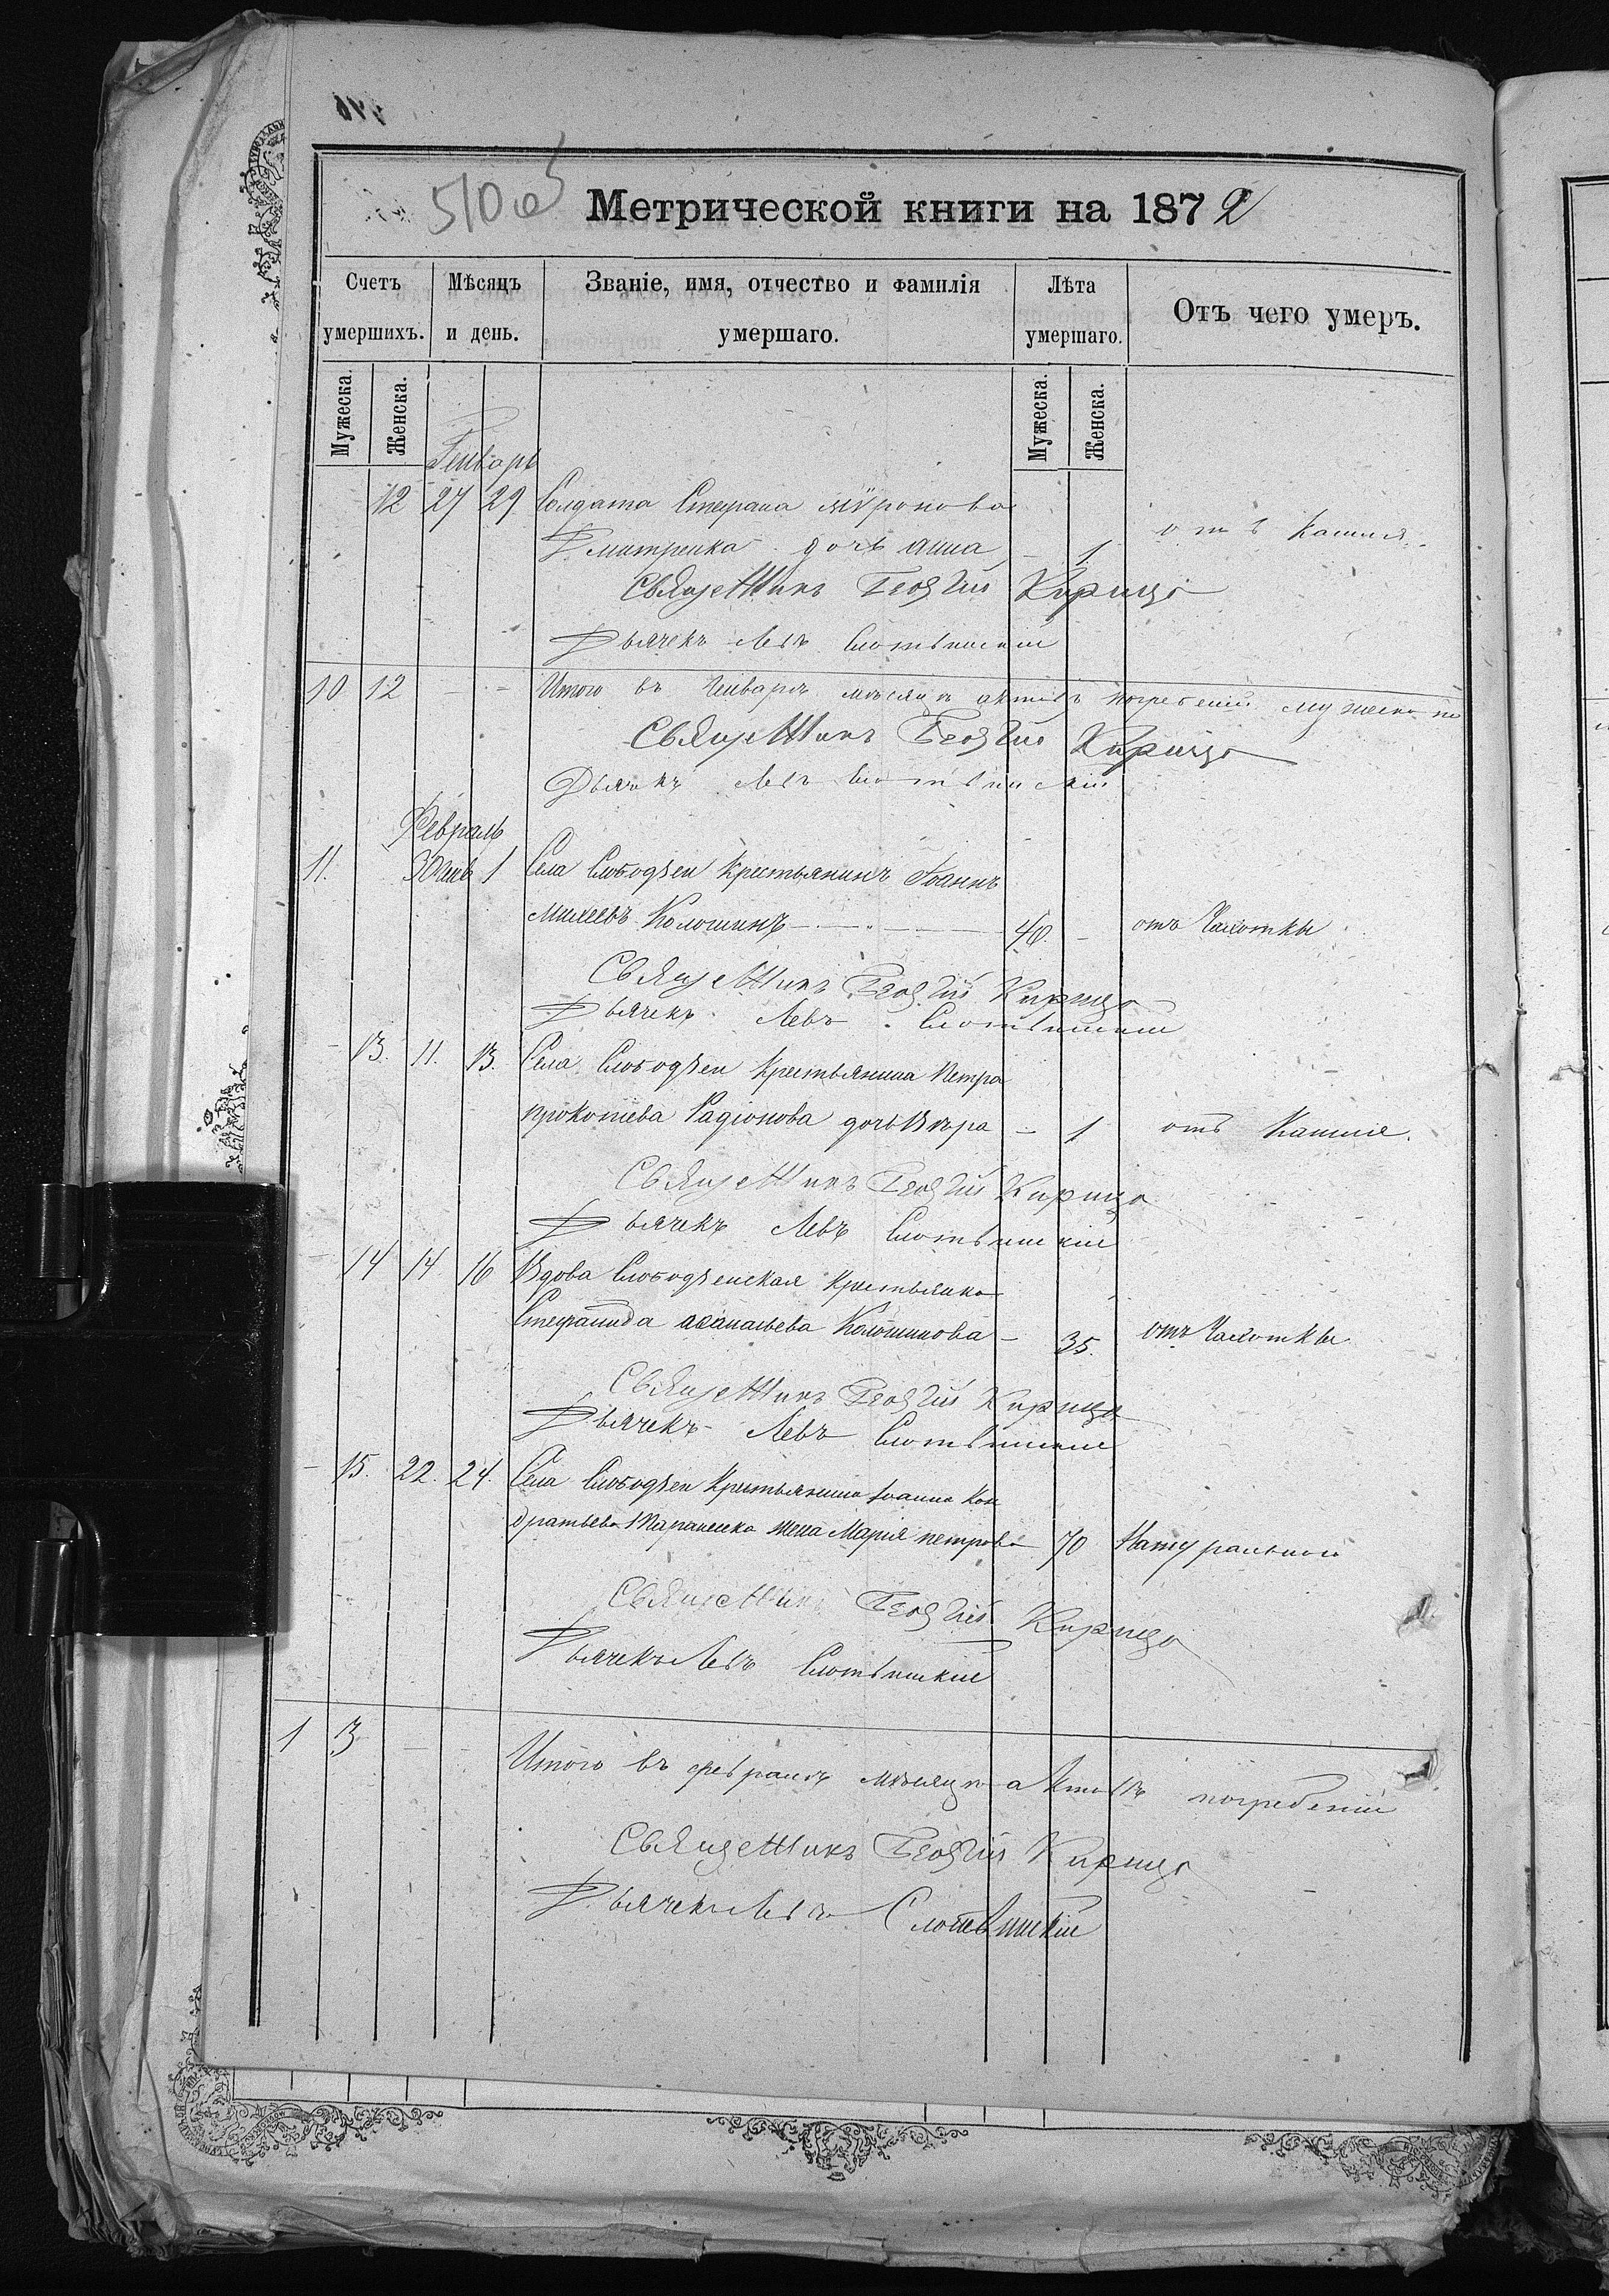 510 об
Метрической книги на 1872
Счетъ умершихъ. Мѣсяцъ и день. Званіе, имя, отчество и фамилія умершаго. Лѣта умершаго. Отъ чего умеръ.
Мужеска. Женска. Мужеска. Женска.
Генварь
12 27 29 Солдата Стефана Мѵронова
Дмитренка дочь Анна – 1 отъ Кашля.
Священникъ Георгій Кирица
Дьячекъ Левъ Слотвинскій
10 12 – – Итого въ Генварѣ мѣсяцѣ актовъ погребеній мужеска по
Священникъ Георгій Кирица
Дьячекъ Левъ Слотвинскій
Февраль
11. 30 Генв 1 Села Слободзеи Крестьянинъ Іоаннъ
Михеевъ Колошинъ 40. – отъ Чахотки
Священникъ Георгій Кирица
Дьячекъ Левъ Слотвинскій
– 13. 11. 13. Села Слободзеи Крестьянина Петра
Прокопіева Радіонова дочь Вѣра – 1 отъ Кашля.
Священникъ Георгій Кирица
Дьячекъ Левъ Слотвинскій
– 14 14 16 Вдова Слободзейская Крестьянка
Стефанида Аѳанасьева Колошинова – 35. отъ Чахотки
Священникъ Георгій Кирица
Дьячекъ Левъ Слотвинскій
– 15. 22. 24. Села Слободзеи Крестьянина Іоанна Кон
дратьева жена Марія Петрова 70 Натурально
Священникъ Георгій Кирица
Дьячекъ Левъ Слотвинскій
1 3 – – Итого въ февралѣ мѣсяцѣ актовъ погребеній
Священникъ Георгій Кирица
Дьячекъ Левъ Слотвинскій